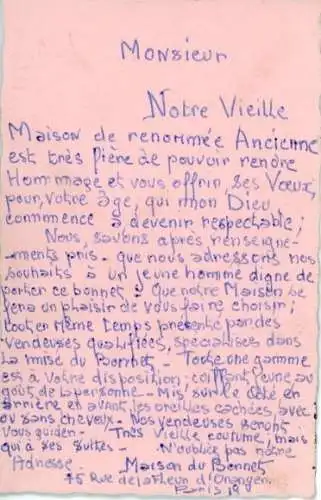 Monsieur
Notre Vieille
Maison de renommée Ancienne
est très fière de pouvoir rendre
Hommage et vous offrir ses Vœux,
pour, votre âge, qui mon Dieu
commence à devenir respectable;
Nous, savons après renseigne-
-ments pris - que nous adressons nos
souhaits à un jeune homme digne de
porter ce bonnet! Que notre Maison se
fera un plaisir de vous faire choisir;
tout en même temps présenté par des
vendeuses qualifiées, spécialisées dans
la mise du Bonnet - Toute une gamme
est à votre disposition: coiffant jeune au
goût de la personne - Mis sur le côté en
arrière en avant, les oreilles cachées, avec
ou sans cheveux - Nos vendeuses seront
vous guider - Très Vieille coutume, mais
qui a ses suites - N'oubliez pas notre
Adresse. Maison du Bonnet
75 Rue de la fleur d'Oranger.
Paris 19